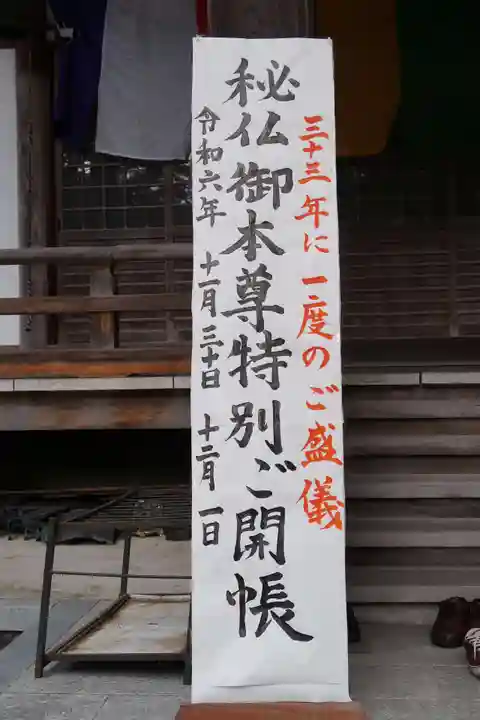 三十三年に一度のご盛儀
秘仏御本尊特別ご開帳
令和六年 十一月三十日 十二月一日